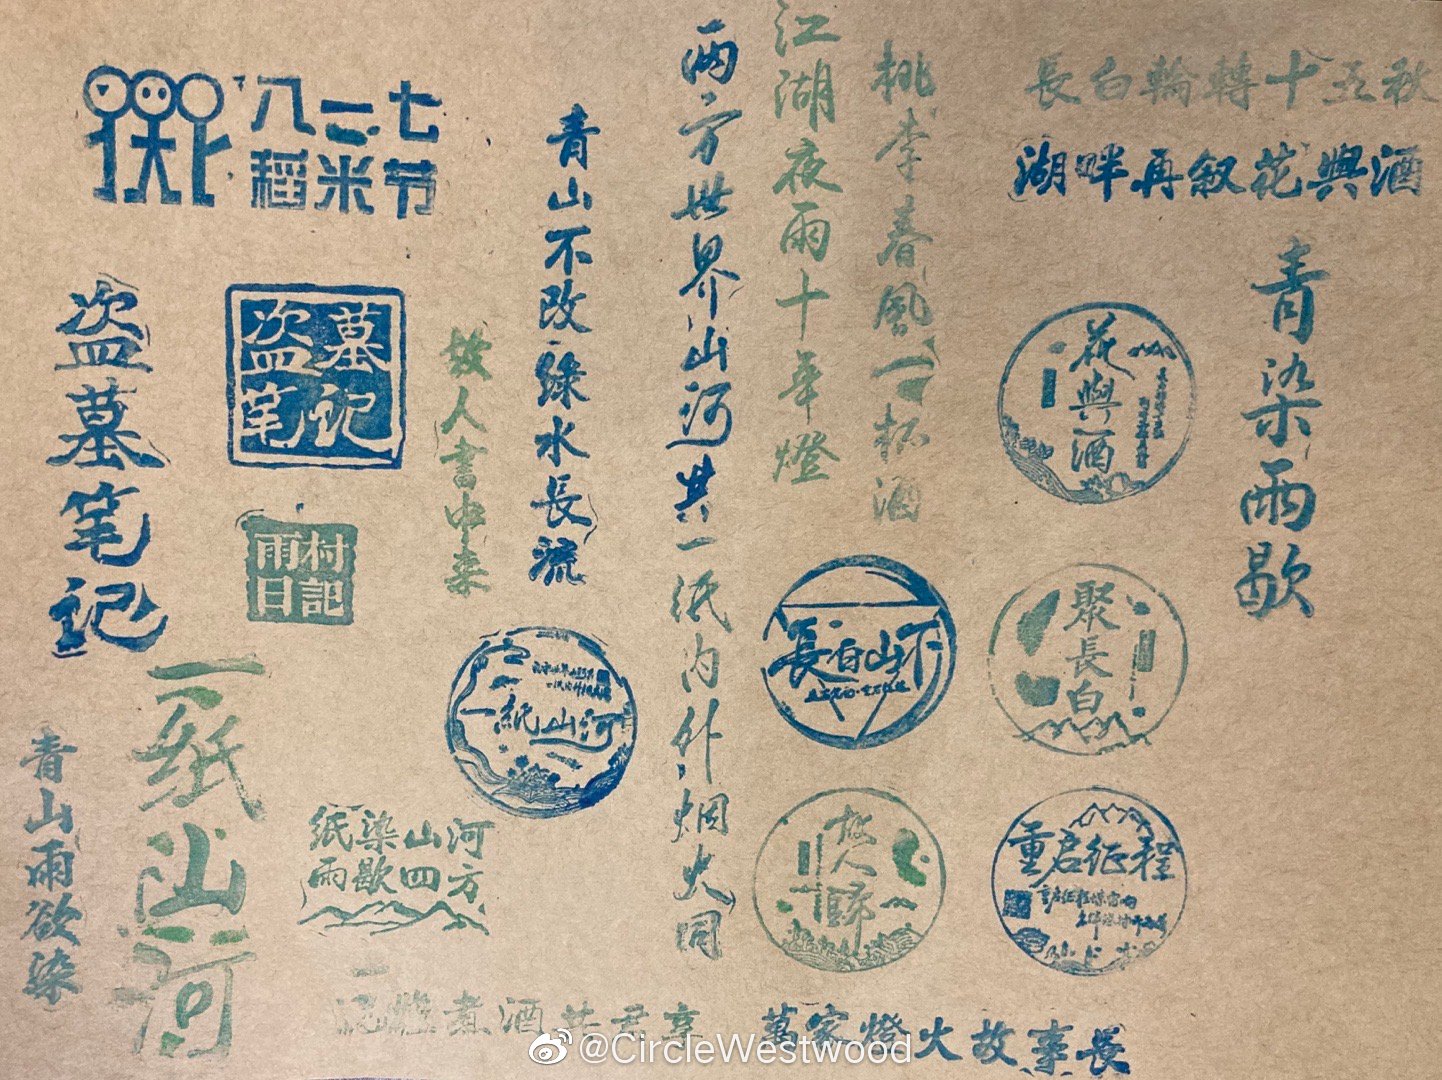 八一七
稻米节
盗墓笔记
盗墓
笔记
雨村
日記
故人書中来
青山不改綠水長流
两方世界山河共一纸内外烟火同
江湖夜雨十年燈
桃李春風一杯酒
長白輪轉十五秋
湖畔再叙花與酒
青染雨歇
花與酒
一紙山河
長白山下
聚長白
故人歸
重启征程
青山雨欲染
一纸山河
纸染山河
雨歇四方
煮酒共君享
萬家燈火故事長
@CircleWestwood